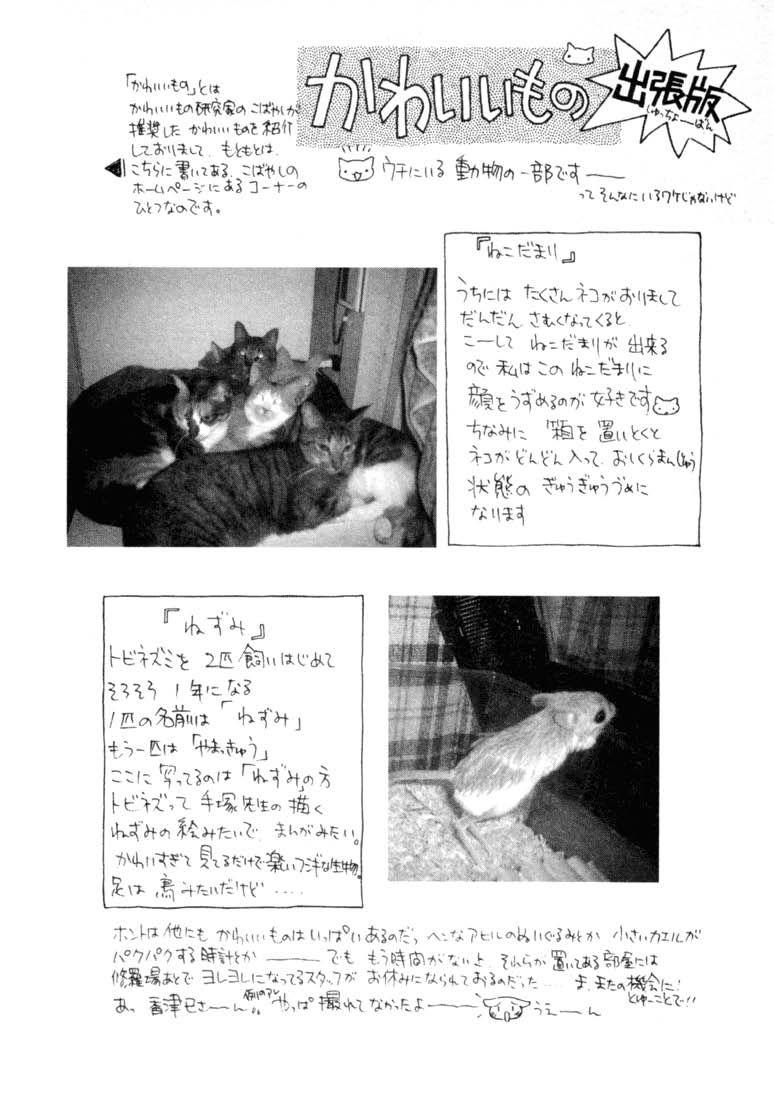 かわいいもの
出張版
しゅっちょーばん
「かわいいもの」とは
かわいいもの研究家のこばやしが
推奨した かわいいものを紹介
しておりまして、もともとは、
こちらに書いてある、こばやしの
ホームページにあるコーナーの
ひとつなのです。
ウチにいる 動物の一部です——
って そんなにいるワケじゃないけど
『ねこだまり』
うちには たくさんネコがおりまして
だんだん さむくなってくると、
こーして ねこだまりが 出来る
ので 私は この ねこだまりに
顔をうずめるのが 好きです
ちなみに 箱を 置いとくと
ネコが どんどん 入って、おしくらまんじゅう
状態の ぎゅうぎゅうづめに
なります
『ねずみ』
トビネズミを 2匹 飼いはじめて
そろそろ 1年になる
1匹の名前は「ねずみ」
もう一匹は「やまっきゅう」
ここに 写ってるのは「ねずみ」の方
トビネズって 手塚先生の 描く
ねずみの 絵みたいで、まんがみたい。
かわいすぎて 見てるだけで楽しいフシギな生物。
足は 鳥みたいだけど‥‥
ホントは他にも かわいいものはいっぱいあるのだっ ヘンなアヒルのぬいぐるみとか 小さいカエルが
パクパクする時計とか——— でも もう時間がないし、それらが 置いてある 部屋には
修羅場あとで ヨレヨレになってるスタッフが お休みになられておるのだった‥‥ ま、またの機会に!
とゆーことで!!
あっ 香津已さ——ん 例のアレ やっぱ 撮れてなかったよ———
うえ——ん